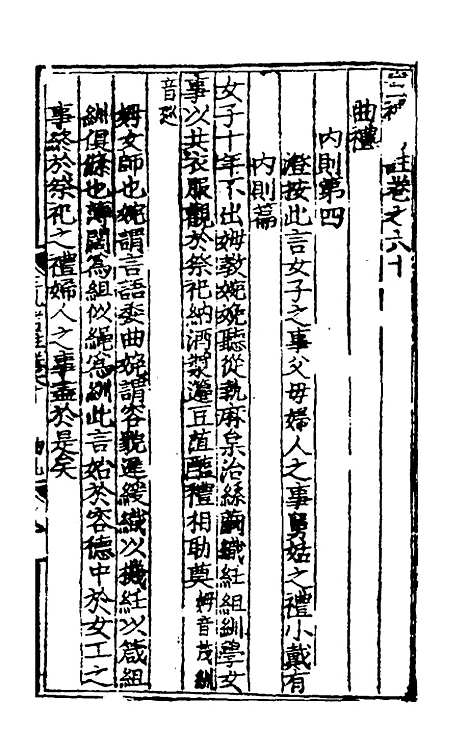 三礼 註卷之六十
曲禮
内則第四
澄按此言女子之事父母婦人之事舅姑之禮小戴有
内則篇
女子十年不出姆教婉娩聽從執麻枲治絲繭織紝組紃學女
事以共衣服觀於祭祀納酒漿籩豆菹醢禮相助奠 姆音茂紃
音巡
姆女師也婉謂言語委曲娩謂容貌遲緩織以機紝以箴組
紃俱絛也薄闊為組似繩為紃此言始於容德中於女工之
事終於祭祀之禮婦人之事盡於是矣